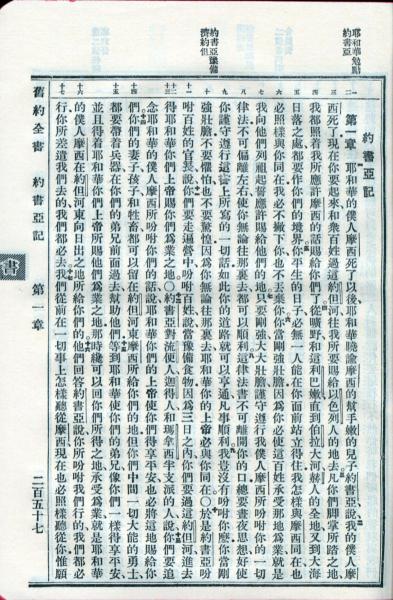 耶和華勉勵
約書亞
約書亞豫備
濟約但
約書亞記
第一章 耶和華的僕人摩西死了以後耶和華曉諭摩西的幫手嫩的兒子約書亞說我的僕人摩
西死了現在你要起來和衆百姓過這約但河往我所要賜給以色列人的地去凡你們脚掌所踏之地
我都照着我所應許摩西的話賜給你們了從曠野和這利巴嫩直到伯拉大河赫人的全地又到大海
日落之處都要作你們的境界你平生的日子必無一人能在你面前站立得住我怎樣與摩西同在也
必照樣與你同在我必不撇下你也不丟棄你你當剛強壯膽因爲你必使這百姓承受那地爲業就是
我向他們列祖起誓應許賜給他們的地只要剛強大大壯膽謹守遵行我僕人摩西所吩咐你的一切
律法不可偏離左右使你無論往那裏去都可以順利這律法書不可離開你的口總要晝夜思想好使
你謹守遵行這書上所寫的一切話如此你的道路就可以亨通凡事順利我豈沒有吩咐你麼你當剛
強壯膽不要懼怕也不要驚惶因爲你無論往那裏去耶和華你的上帝必與你同在○於是約書亞吩
咐百姓的官長說你們要走遍營中吩咐百姓說當豫備食物因爲三日之內你們要過這約但河進去
得耶和華你們上帝賜你們爲業之地○約書亞對流便人迦得人和瑪拿西半支派的人說你們要追
念耶和華的僕人摩西所吩咐你們的話說耶和華你們的上帝使你們得享平安也必將這地賜給你
們你們的妻子孩子和牲畜都可以留在約但河東摩西所給你們的地但你們中間一切大能的勇士
都要帶着兵器在你們的弟兄前面過去幫助他們等到耶和華使你們的弟兄像你們一樣得享平安
並且得着耶和華你們上帝所賜他們爲業之地那時纔可以回你們所得之地承受爲業就是耶和華
的僕人摩西在約但河東向日出之地所給你們的他們回答約書亞說你所吩咐我們行的我們都必
行你所差遣我們去的我們都必去我們從前在一切事上怎樣聽從摩西現在也必照樣聽從你惟願
舊約全書 約書亞記 第一章 二百五十七
書